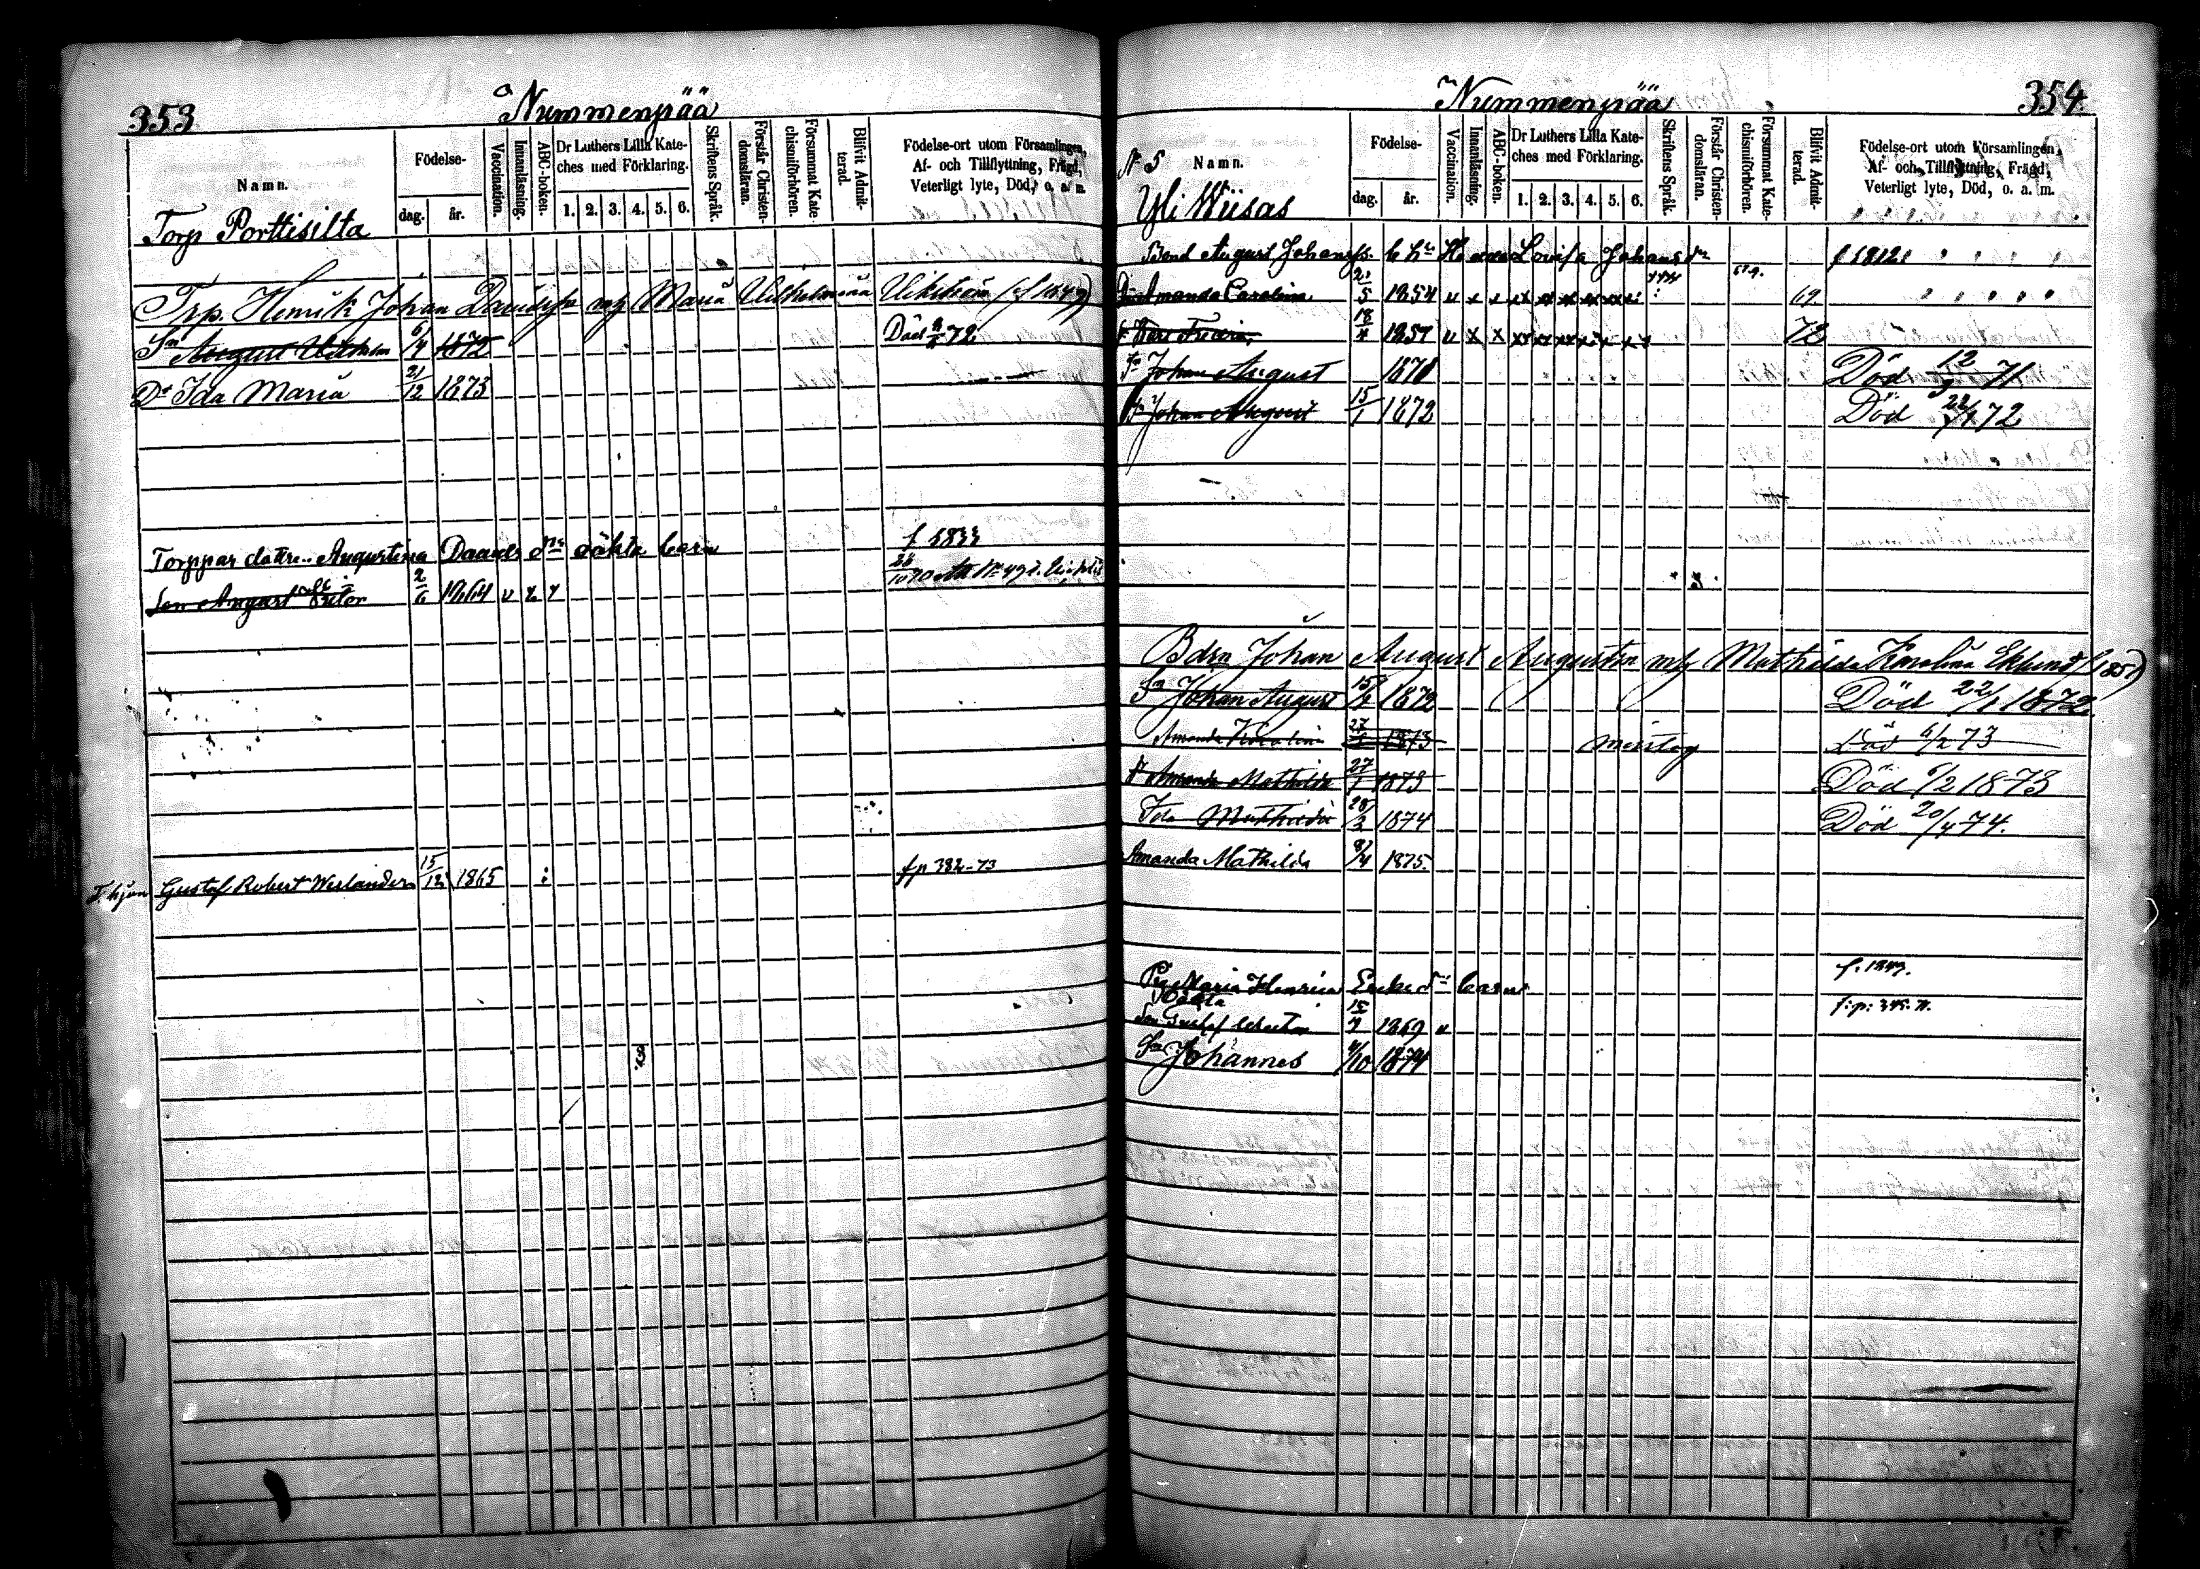 353
Nummenpää
Namn.
Födelse-
dag. år.
Vaccination.
Innanläsning.
ABC-boken.
Dr Luthers Lilla Kate-
ches med Förklaring.
1. 2. 3. 4. 5. 6.
Skriftens Språk.
Förstår Christen-
domsläran.
Försummat Kate-
chismiförhören.
Blifvit Admit-
terad.
Födelse-ort utom Församlingen,
Af- och Tillflyttning, Frägd,
Veterligt lyte, Död, o. a. m.
Torp Porttisilta
Trp. Henrik Johan Davidsson m/h Maria Vilhelmina Vikström
Sn August Vilhelm 6/4 1872 Död 72
Dr Ida Maria 21/12 1873
Torppar dottren Augustina Davids dr oäkta barn f 1833
Son August Viktor 2/6 1864 v x x
T. hjon Gustaf Robert Weslander 15/12 1865 fp 382-73
354
Nummenpää
No 5 Namn.
Födelse-
dag. år.
Vaccination.
Innanläsning.
ABC-boken.
Dr Luthers Lilla Kate-
ches med Förklaring.
1. 2. 3. 4. 5. 6.
Skriftens Språk.
Förstår Christen-
domsläran.
Försummat Kate-
chismiförhören.
Blifvit Admit-
terad.
Födelse-ort utom Församlingen,
Af- och Tillflyttning, Frägd,
Veterligt lyte, Död, o. a. m.
Yli Wiisas
Bond August Johansss. Lovisa Johans dr f 1812
Amanda Carolina 21/5 1854 v x x 69
18 1857 v x x 72
Sn Johan August 1871 Död 12 71
Sn Johan August 15/1 1872 Död 22/1 72
Bdsn Johan August Augustsn m/h Mathilda Karolina Eklund
Sn Johan August 15/1 1872 Död 22/1 1872.
Amanda Karolina 27/1 1873 misstag Död 6/2 73
Dr Amanda Mathilda 27/1 1873 Död 6/2 1873
Ida Mathilda 28/3 1874 Död 20/4 74.
Amanda Mathilda 8/4 1875.
Pig Maria Henrica barn f. 1849.
oäkta
Son Gustaf 15/9 1869 v f: p: 345. 71.
Sn Johannes 4/10 1874